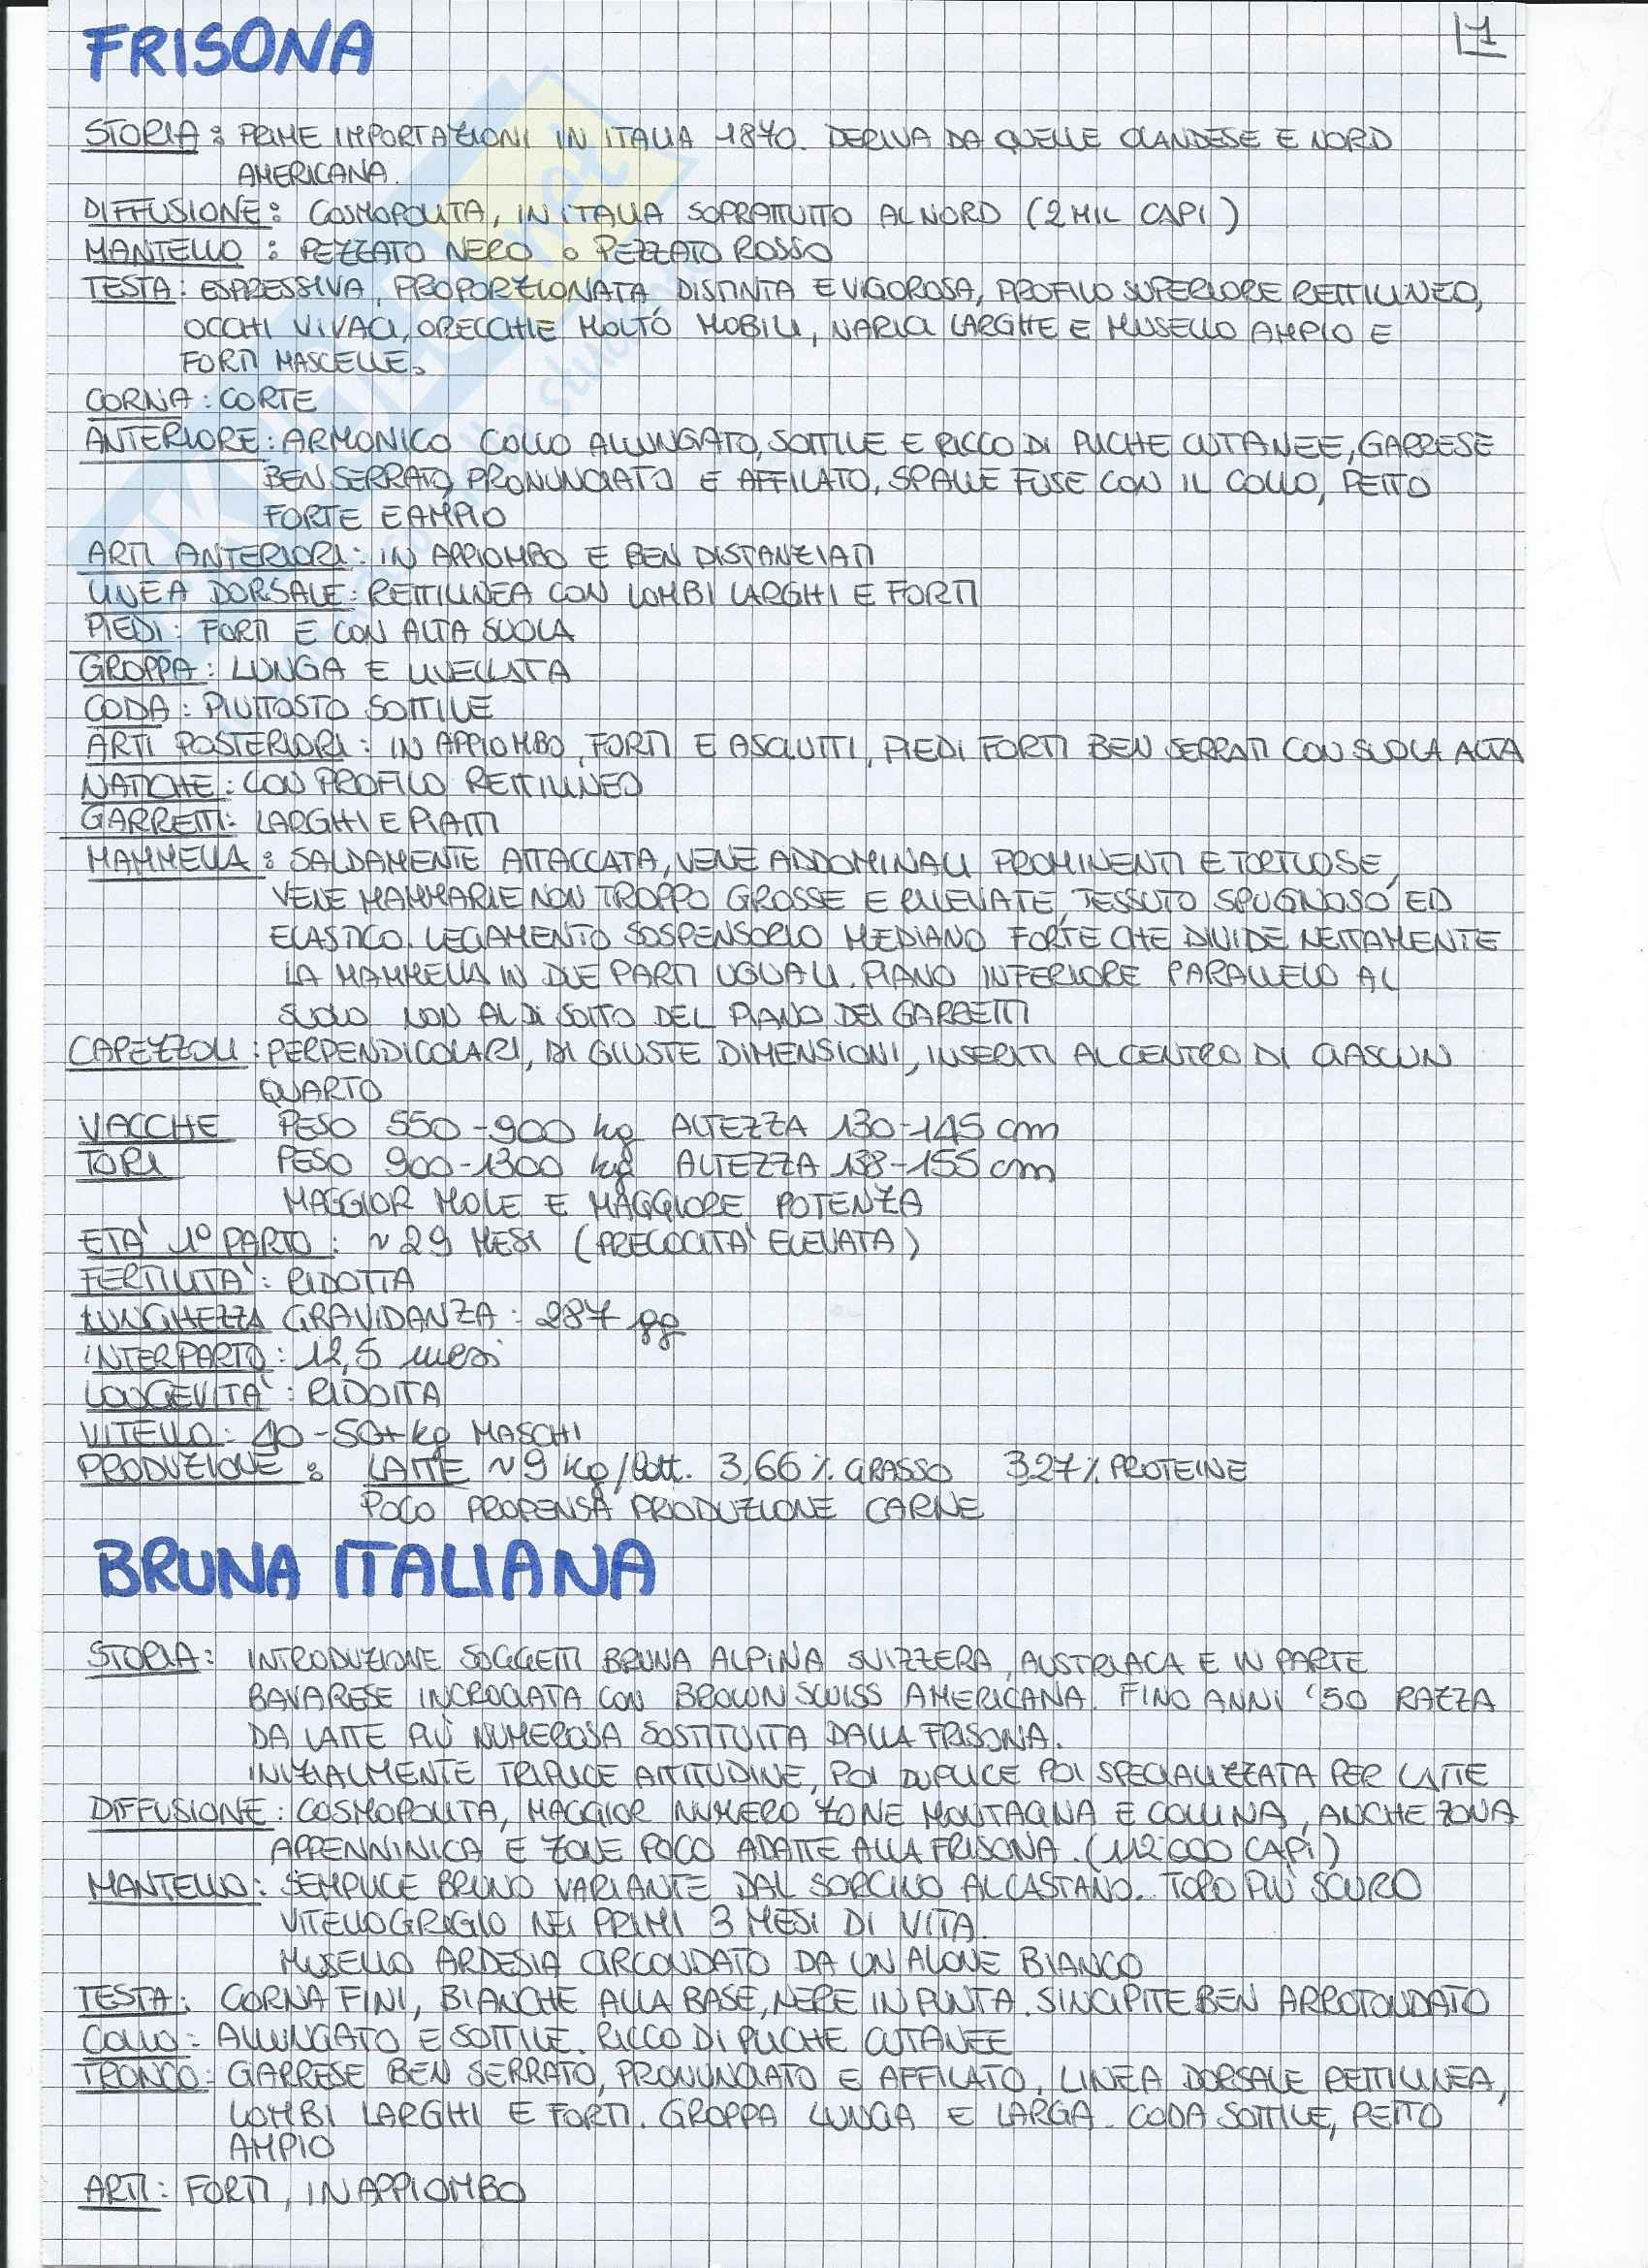 1
FRISONA
STORIA: PRIME IMPORTAZIONI IN ITALIA 1870. DERIVA DA QUELLE OLANDESE E NORD
AMERICANA.
DIFFUSIONE: COSMOPOLITA, IN ITALIA SOPRATTUTTO AL NORD (2 MIL CAPI)
MANTELLO: PEZZATO NERO o PEZZATO ROSSO
TESTA: ESPRESSIVA, PROPORZIONATA, DISTINTA E VIGOROSA, PROFILO SUPERIORE RETTILINEO,
OCCHI VIVACI, ORECCHIE MOLTO MOBILI, NARICI LARGHE E MUSELLO AMPIO E
FORTI MASCELLE.
CORNA: CORTE
ANTERIORE: ARMONICO COLLO ALLUNGATO, SOTTILE E RICCO DI PLICHE CUTANEE, GARRESE
BEN SERRATO, PRONUNCIATO E AFFILATO, SPALLE FUSE CON IL COLLO, PETTO
FORTE E AMPIO
ARTI ANTERIORI: IN APPIOMBO E BEN DISTANZIATI
LINEA DORSALE: RETTILINEA CON LOMBI LARGHI E FORTI
PIEDI: FORTI E CON ALTA SUOLA
GROPPA: LUNGA E LIVELLATA
CODA: PIUTTOSTO SOTTILE
ARTI POSTERIORI: IN APPIOMBO, FORTI E ASCIUTTI, PIEDI FORTI BEN SERRATI CON SUOLA ALTA
NATICHE: CON PROFILO RETTILINEO
GARRETTI: LARGHI E PIATTI
MAMMELLA: SALDAMENTE ATTACCATA, VENE ADDOMINALI PROMINENTI E TORTUOSE,
VENE MAMMARIE NON TROPPO GROSSE E RILEVATE, TESSUTO SPUGNOSO ED
ELASTICO. LEGAMENTO SOSPENSORIO MEDIANO FORTE CHE DIVIDE NETTAMENTE
LA MAMMELLA IN DUE PARTI UGUALI. PIANO INFERIORE PARALLELO AL
SUOLO NON AL DI SOTTO DEL PIANO DEI GARRETTI
CAPEZZOLI: PERPENDICOLARI, DI GIUSTE DIMENSIONI, INSERITI AL CENTRO DI CIASCUN
QUARTO
VACCHE PESO 550-900 kg ALTEZZA 130-145 cm
TORI PESO 900-1300 kg ALTEZZA 138-155 cm
MAGGIOR MOLE E MAGGIORE POTENZA
ETA' 1° PARTO: ~ 29 MESI (PRECOCITA' ELEVATA)
FERTILITA': RIDOTTA
LUNGHEZZA GRAVIDANZA: 287 gg
INTERPARTO: 12,5 mesi
LONGEVITA': RIDOTTA
VITELLO: 40-50+kg MASCHI
PRODUZIONE: LATTE ~9 Kg/latt. 3,66% GRASSO 3,27% PROTEINE
POCO PROPENSA PRODUZIONE CARNE
BRUNA ITALIANA
STORIA: INTRODUZIONE SOGGETTI BRUNA ALPINA SVIZZERA, AUSTRIACA E IN PARTE
BAVARESE INCROCIATA CON BROWN SWISS AMERICANA. FINO ANNI '50 RAZZA
DA LATTE PIÙ NUMEROSA SOSTITUITA DALLA FRISONA.
INIZIALMENTE TRIPLICE ATTITUDINE, POI DUPLICE POI SPECIALIZZATA PER LATTE
DIFFUSIONE: COSMOPOLITA, MAGGIOR NUMERO ZONE MONTAGNA E COLLINA, ANCHE ZONA
APPENNINICA E ZONE POCO ADATTE ALLA FRISONA. (112'000 CAPI)
MANTELLO: SEMPLICE BRUNO VARIANTE DAL SORCINO AL CASTANO. TORO PIÙ SCURO
VITELLO GRIGIO NEI PRIMI 3 MESI DI VITA.
MUSELLO ARDESIA CIRCONDATO DA UN ALONE BIANCO
TESTA: CORNA FINI, BIANCHE ALLA BASE, NERE IN PUNTA. SINCIPITE BEN ARROTONDATO
COLLO: ALLUNGATO E SOTTILE. RICCO DI PLICHE CUTANEE
TRONCO: GARRESE BEN SERRATO, PRONUNCIATO E AFFILATO, LINEA DORSALE RETTILINEA,
LOMBI LARGHI E FORTI. GROPPA LUNGA E LARGA. CODA SOTTILE, PETTO
AMPIO
ARTI: FORTI, IN APPIOMBO